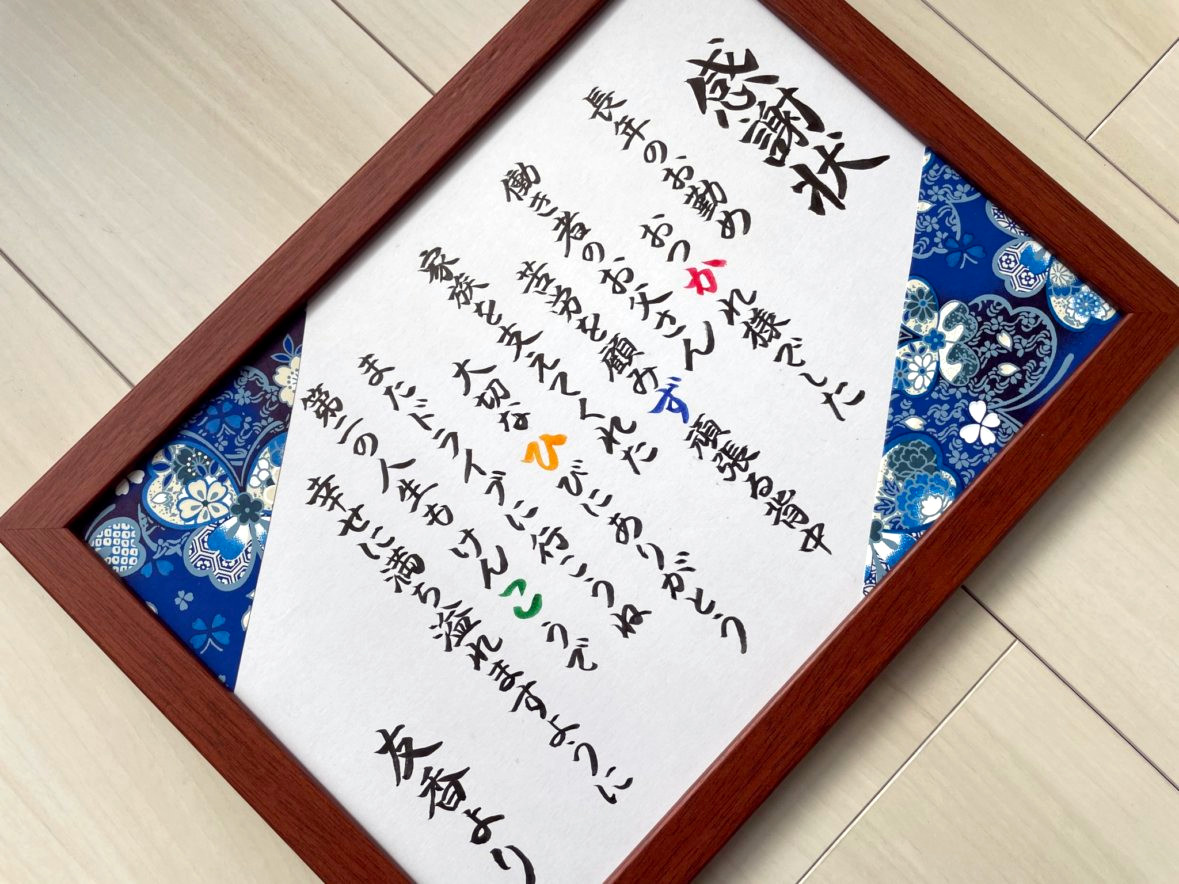 感謝状
長年のお勤め
おつかれ様でした
働き者のお父さん
苦労を顧みず頑張る背中
家族を支えてくれた
大切なひびにありがとう
またドライブに行こうね
第二の人生もけんこうで
幸せに満ち溢れますように
友香より